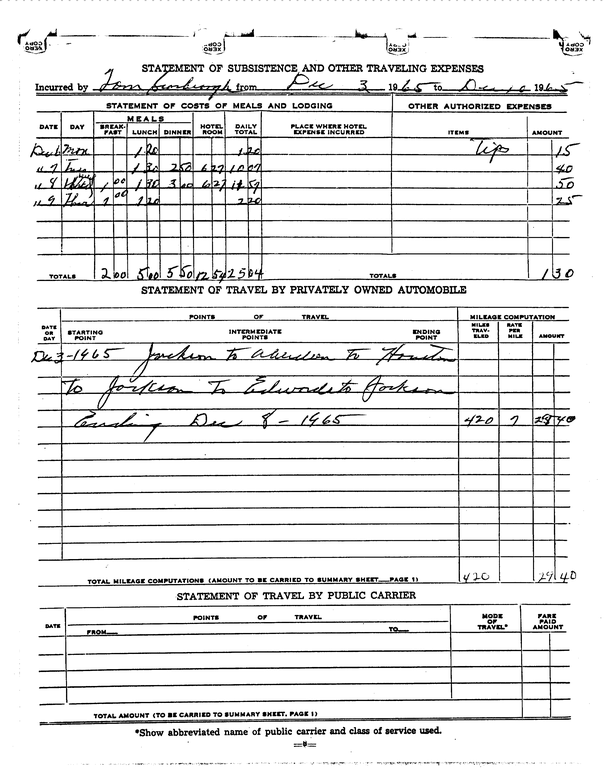 XERO COPY
XERO COPY
XERO COPY
XERO COPY
STATEMENT OF SUBSISTENCE AND OTHER TRAVELING EXPENSES
Incurred by Tom from Dec 3 1965 to Dec 1965
STATEMENT OF COSTS OF MEALS AND LODGING OTHER AUTHORIZED EXPENSES
DATE DAY MEALS BREAK-FAST LUNCH DINNER HOTEL ROOM DAILY TOTAL PLACE WHERE HOTEL EXPENSE INCURRED ITEMS AMOUNT
Dec 6 Mon 1 20 1 20 Tips 15
" 7 Tues 1 30 2 50 6 27 10 07 40
" 8 Wed 1 00 1 30 3 00 6 27 11 57 50
" 9 Thur 1 00 1 20 2 20 25
TOTALS 2 00 5 00 5 50 12 54 25 04 TOTALS 1 30
STATEMENT OF TRAVEL BY PRIVATELY OWNED AUTOMOBILE
DATE OR DAY POINTS OF TRAVEL MILEAGE COMPUTATION
STARTING POINT INTERMEDIATE POINTS ENDING POINT MILES TRAV-ELED RATE PER MILE AMOUNT
Dec 3-1965 Jackson to Aberdeen to Houston
To Jackson To Edwards to Jackson
Ending Dec 8 - 1965 420 7 29 40
TOTAL MILEAGE COMPUTATIONS (AMOUNT TO BE CARRIED TO SUMMARY SHEET__PAGE 1) 420 29 40
STATEMENT OF TRAVEL BY PUBLIC CARRIER
DATE POINTS OF TRAVEL MODE OF TRAVEL* FARE PAID AMOUNT
FROM__ TO__
TOTAL AMOUNT (TO BE CARRIED TO SUMMARY SHEET, PAGE 1)
*Show abbreviated name of public carrier and class of service used.